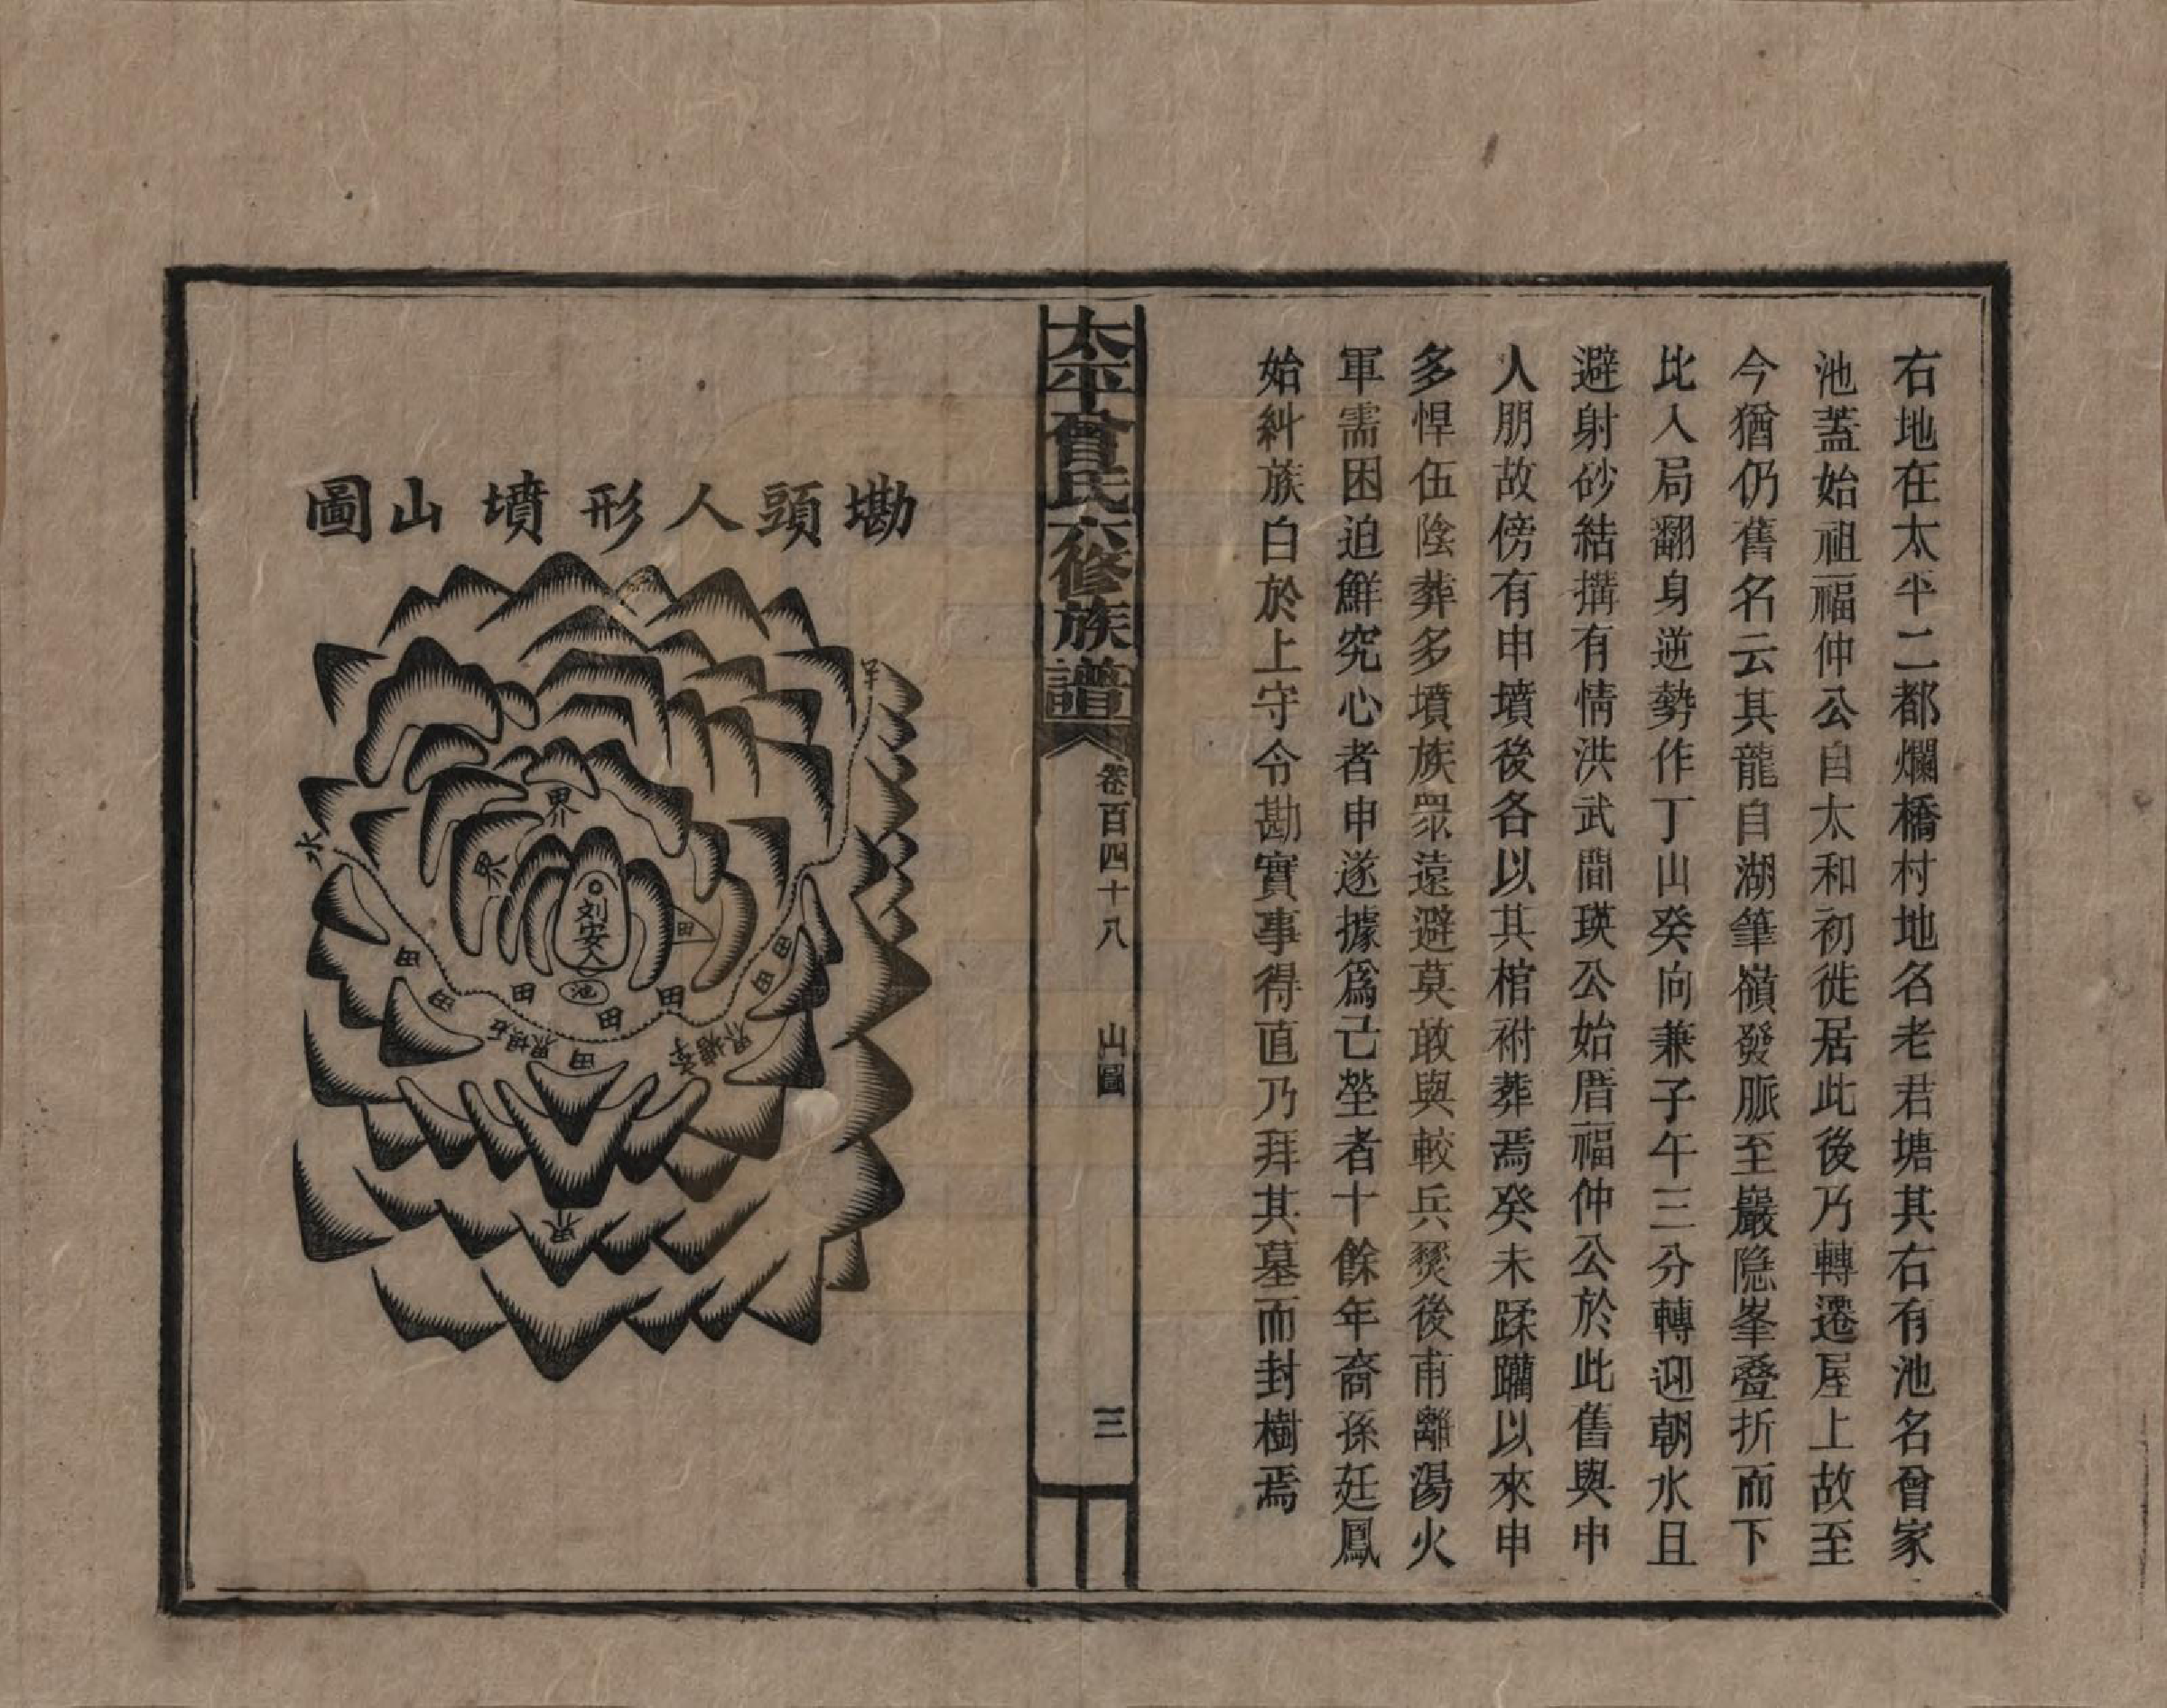 右地在太平二都爛橋村地名老君塘其右有池名曾家
池蓋始祖福仲公自太和初徙居此後乃轉遷屋上故至
今猶仍舊名云其龍自湖筆嶺發脈至巖隠峯疊折而下
比入局翻身逆勢作丁山癸向兼子午三分轉迎朝水且
避射砂結搆有情洪武間瑛公始厝福仲公於此舊與申
人朋故傍有申墳後各以其棺祔葬焉癸未蹂躪以來申
多悍伍陰葬多墳族眾遠避莫敢與較兵燹後甫離湯火
軍需困迫鮮究心者申遂據爲己塋者十餘年裔孫廷鳳
始糾族白於上守令勘實事得直乃拜其墓而封樹焉
太平曾氏六修族譜
卷百四十八
山圖
三
墈頭人形墳山圖
水
界
界
刘安人
池
田
田
田
田
田
田
田
田
田
界